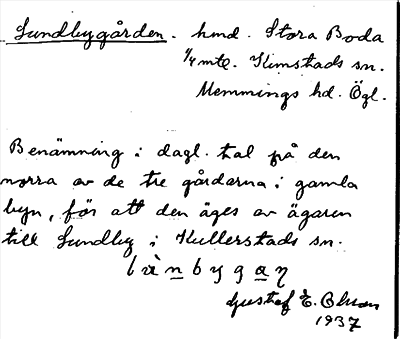 Sundbygården. hmd. Stora Boda
1/4 mtl. Kimstads sn.
Memmings hd. Ögl.
Benämning i dagl. tal på den
norra av de tre gårdarna i gamla
byn, för att den äges av ägaren
till Sundby i Kullerstads sn.
Gustaf E. Olson
1937